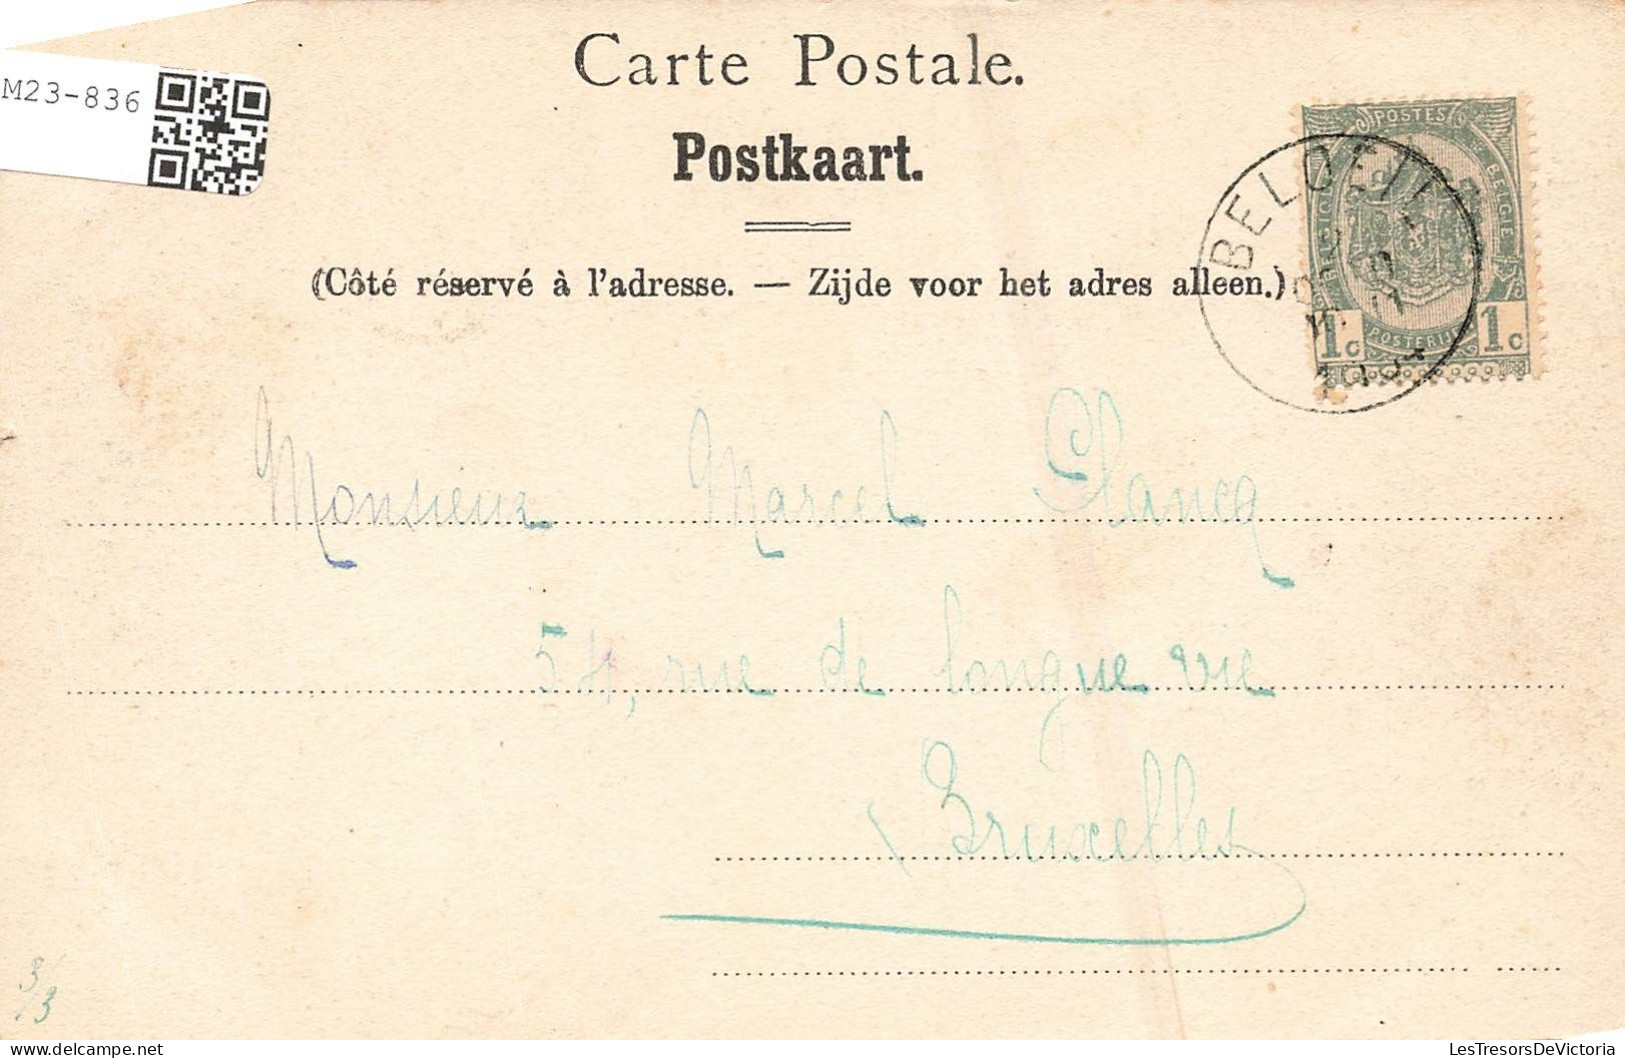 M23-836
Carte Postale.
Postkaart.
(Côté réservé à l'adresse. — Zijde voor het adres alleen.)
POSTES
BELGIQUE
BELGIE
1c POSTERIJEN 1c
BELOEIL
Monsieur Marcel Clancq
54, rue de longue vie
Bruxelles
3/3
LesTresorsDeVictoria